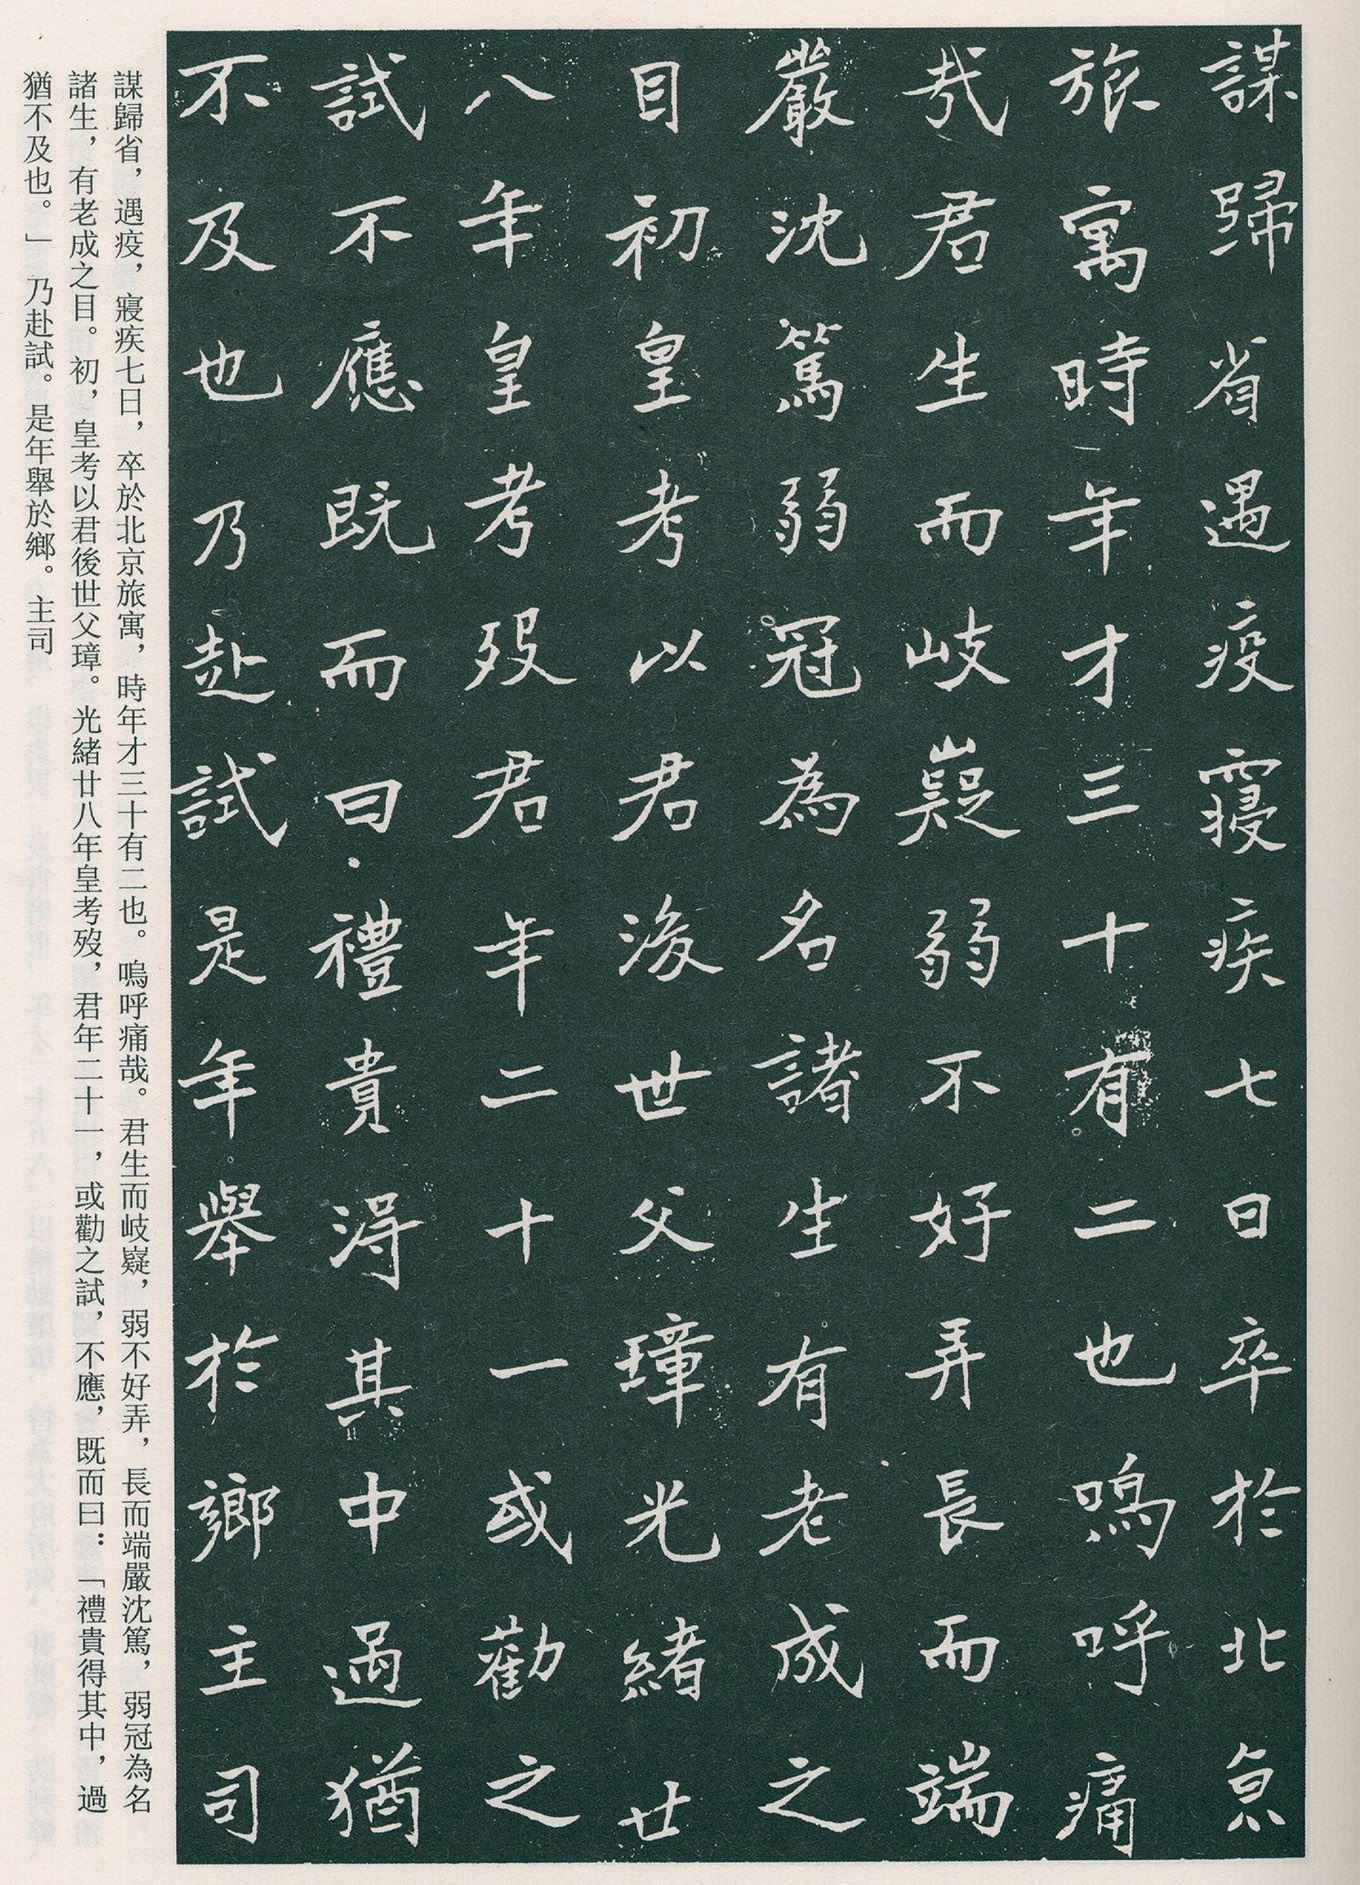 謀歸省遇疫寢疾七日卒於北京
旅寓時年才三十有二也嗚呼痛
哉君生而岐嶷弱不好弄長而端
嚴沈篤弱冠為名諸生有老成之
目初皇考以君後世父璋光緒廿
八年皇考歿君年二十一或勸之
試不應既而曰禮貴得其中過猶
不及也乃赴試是年舉於鄉主司
謀歸省，遇疫，寢疾七日，卒於北京旅寓，時年才三十有二也。嗚呼痛哉。君生而岐嶷，弱不好弄，長而端嚴沈篤，弱冠為名
諸生，有老成之目。初，皇考以君後世父璋。光緒廿八年皇考歿，君年二十一，或勸之試，不應，既而曰：「禮貴得其中，過
猶不及也。」乃赴試。是年舉於鄉。主司